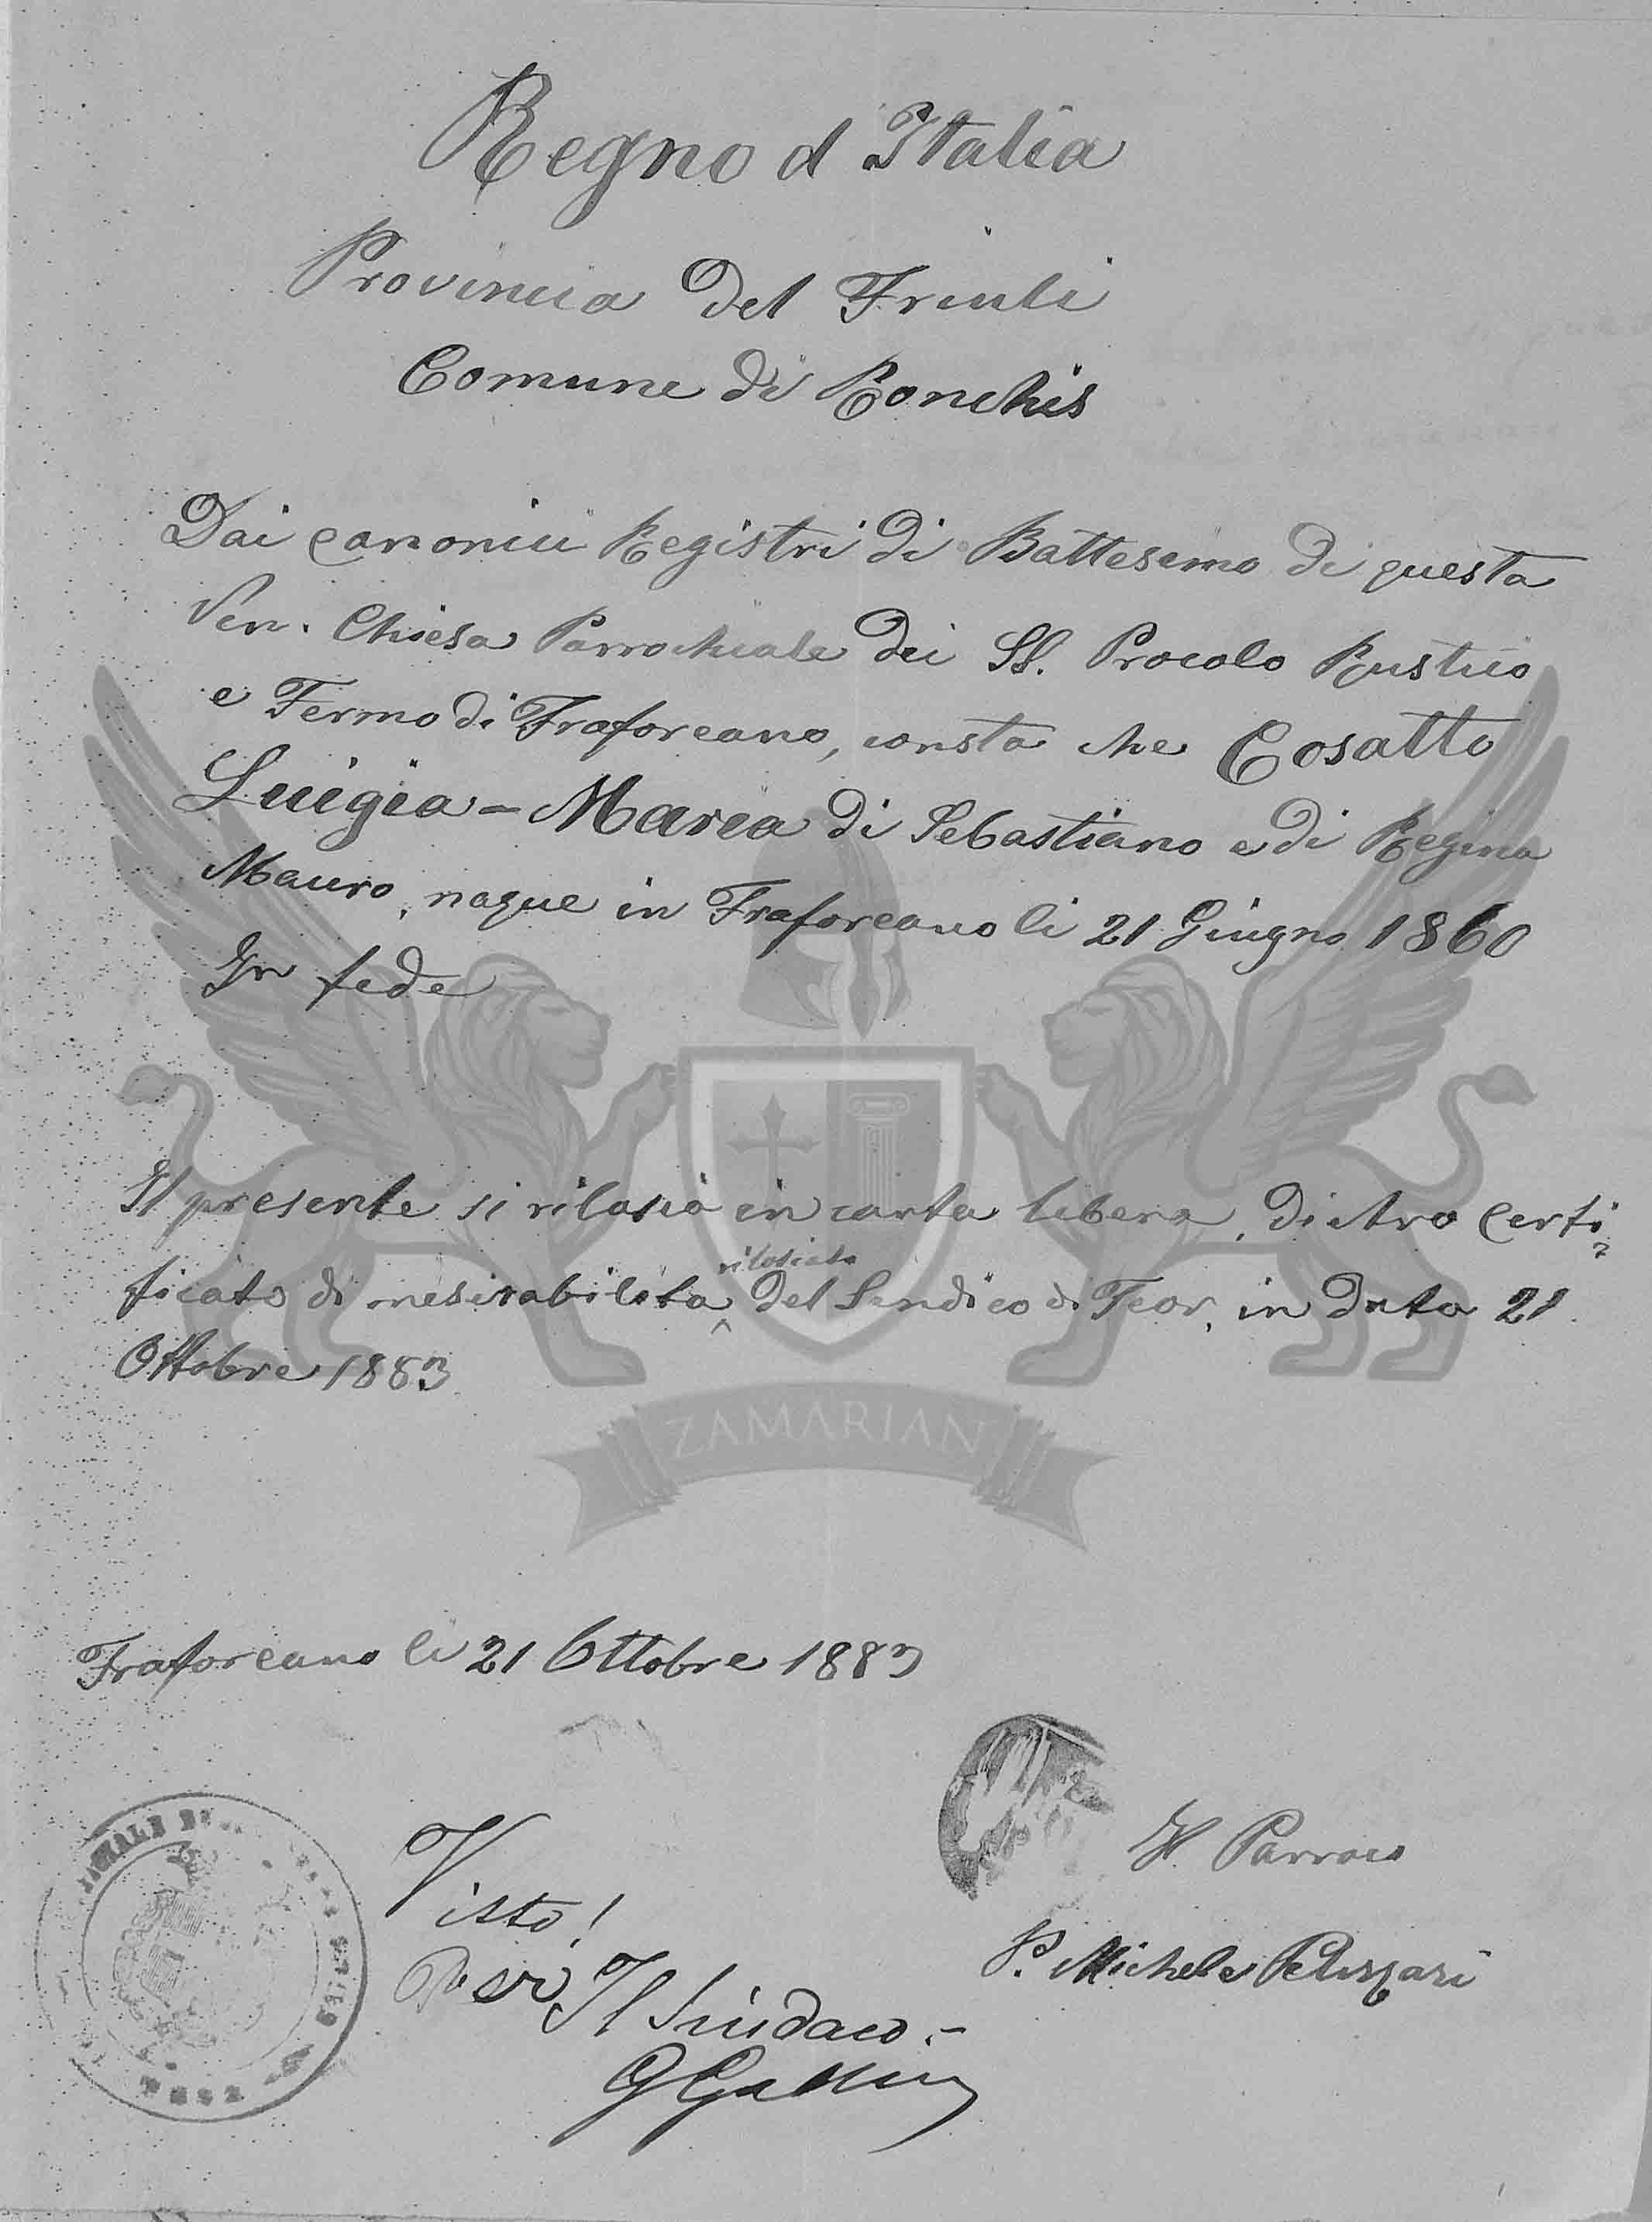 Regno d Italia
Provincia del Friuli
Comune di Ronchis
Dai canonici Registri di Battesimo di questa
Ven. Chiesa Parrochiale dei SS. Procolo Rustico
e Fermo di Fraforeano, consta che Cosatto
Luigia - Maria di Sebastiano e di Regina
Mauro, naque in Fraforeano li 21 Giugno 1860
In fede
Il presente si rilascia in carta libera, dietro certi
rilasciato
ficato di meserabilita del Sindico di Teor, in data 21
Ottobre 1883
ZAMARIAN
Fraforeano li 21 Ottobre 1883
Il Parroco
Visto!
P. Michele
Per Il Sindaco.-